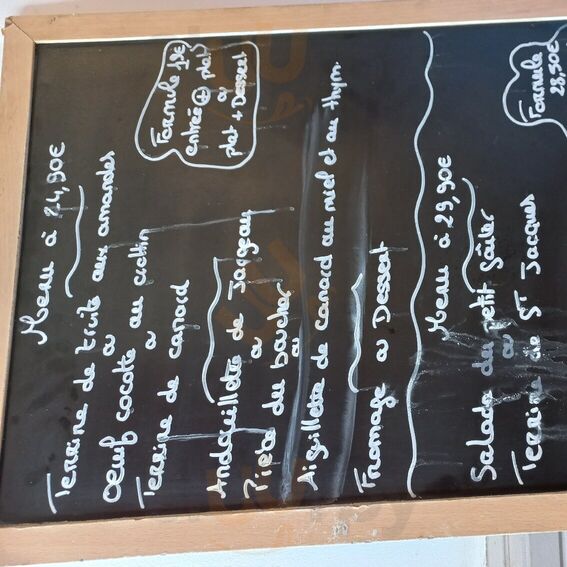 Menu à 24,90€
Terrine de truite aux amandes
ou
Oeuf cocotte au crottin
ou
Terrine de canard
Andouillette de Jargeau
ou
Pièce du boucher
ou
Aiguillette de canard au miel et au thym
Fromage ou Dessert
Formule
entrée + plat
ou
plat + Dessert
Menu à 29,90€
Salade du Petit Goûter
ou
Terrine de St Jacques
Formule
28,50€